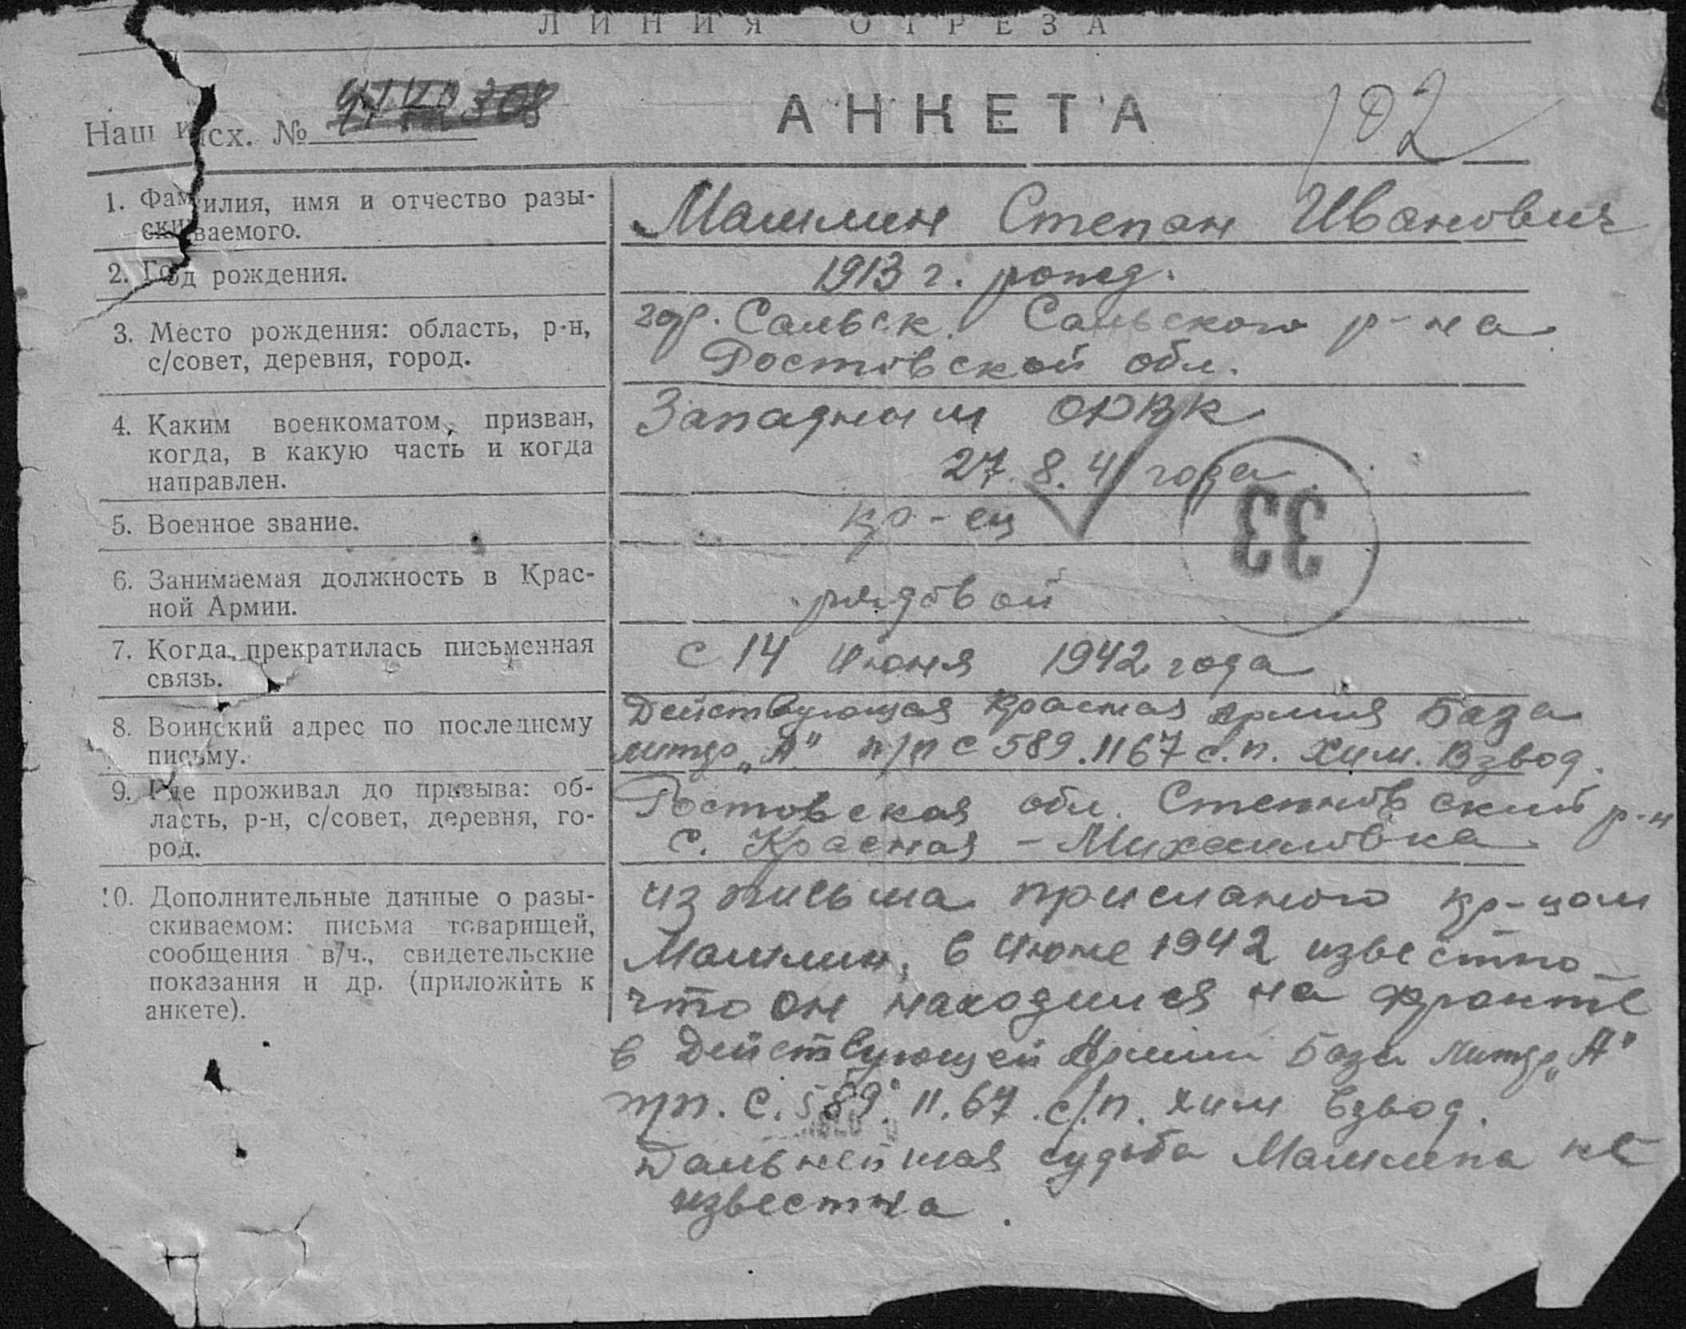 ЛИНИЯ ОТРЕЗА
Наш исх. №
АНКЕТА
102
1. Фамилия, имя и отчество разы-
скиваемого.
Машлин Степан Иванович
2. Год рождения.
1913 г. рожд.
3. Место рождения: область, р-н,
с/совет, деревня, город.
гор. Сальск. Сальского р-на
Ростовской обл.
4. Каким военкоматом, призван,
когда, в какую часть и когда
направлен.
Западным ОРВК
27.8.41 года
33
5. Военное звание.
кр-ец
6. Занимаемая должность в Крас-
ной Армии.
рядовой
7. Когда прекратилась письменная
связь.
с 14 Июня 1942 года
8. Воинский адрес по последнему
письму.
Действующая Красная Армия База
литер „А" п/п с 589. 1167 с.п. хим. Взвод.
9. Где проживал до призыва: об-
ласть, р-н, с/совет, деревня, го-
род.
Ростовская обл. Степновский р-н
с. Красная - Михайловка
10. Дополнительные данные о разы-
скиваемом: письма товарищей,
сообщения в/ч., свидетельские
показания и др. (приложить к
анкете).
из письма присланого кр-цом
Машлин, в Июне 1942 известно
что он находился на фронте
в Действующей Армии База Литер „А"
пп. с. 589. 11.67 с/п. хим взвод.
Дальнейшая судьба Машлина не
известна.